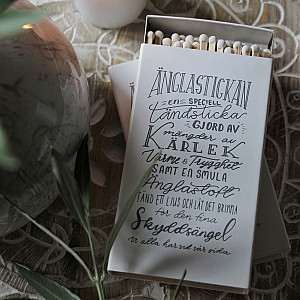 ÄNGLASTICKAN
en SPECIELL
Tändsticka
GJORD AV
mängder av
KÄRLEK
Värme & Trygghet
SAMT EN SMULA
Änglastoft
TÄND ETT LJUS OCH LÅT DET BRINNA
för den fina
Skyddsängel
Vi alla har vid vår sida